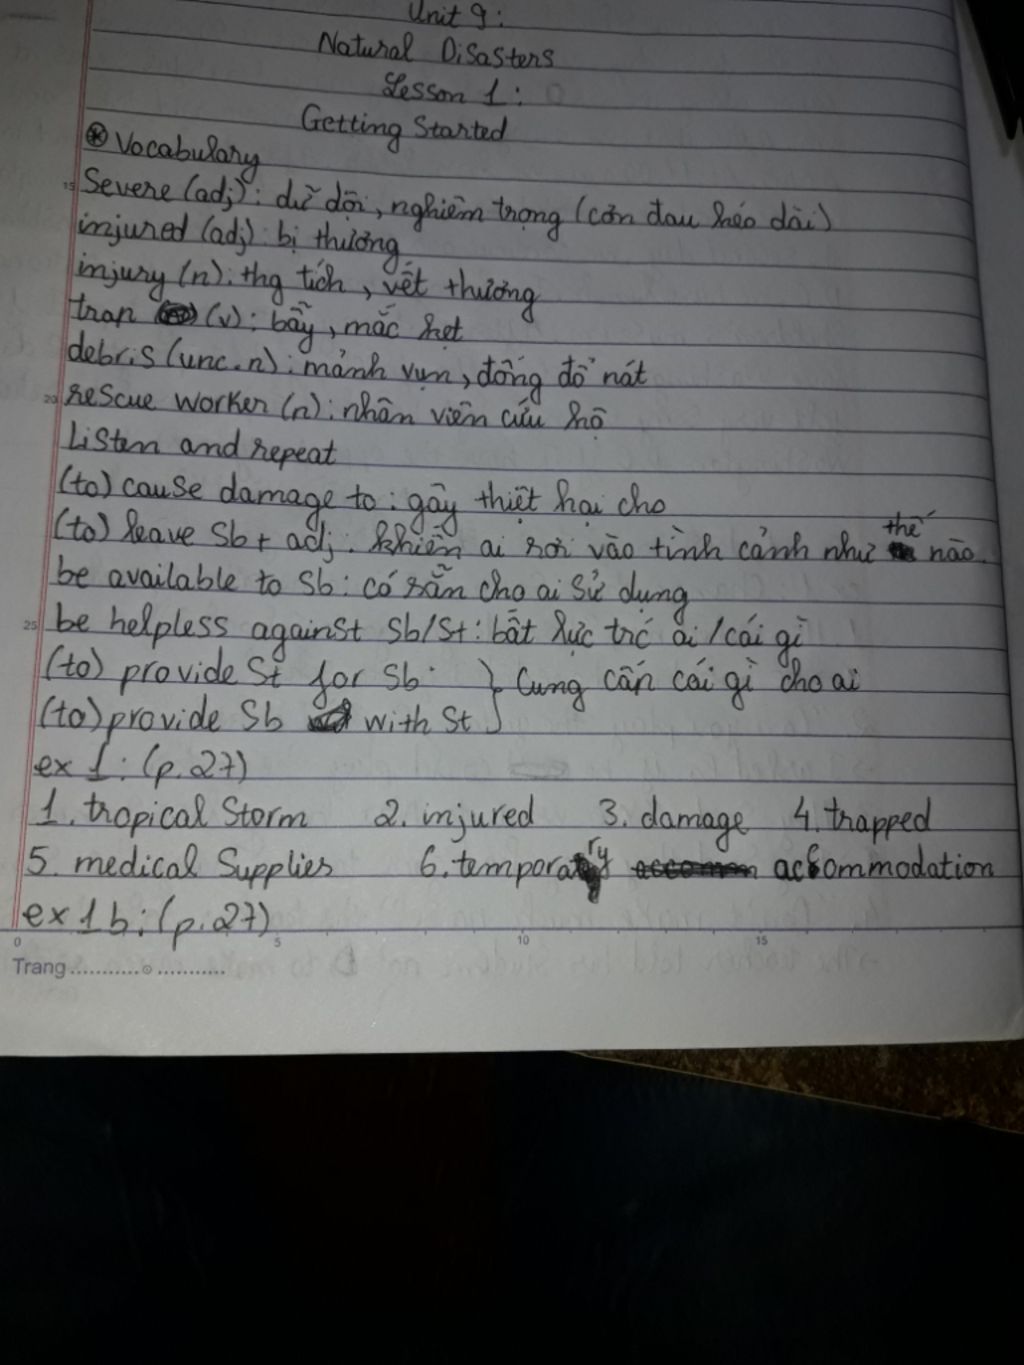 Unit 9:
Natural Disasters
Lesson 1:
Getting Started
⊛ Vocabulary
Severe (adj): dữ dội, nghiêm trọng (cơn đau kéo dài)
injured (adj): bị thương
injury (n): thg tích, vết thương
trap (v): bẫy, mắc kẹt
debris (unc.n): mảnh vụn, đống đổ nát
rescue worker (n): nhân viên cứu hộ
Listen and repeat
(to) cause damage to: gây thiệt hại cho
(to) leave Sb + adj: khiến ai rơi vào tình cảnh như thế nào.
be available to Sb: có sẵn cho ai sử dụng
be helpless against Sb/St: bất lực trc ai/cái gì
(to) provide St for Sb } Cung cấn cái gì cho ai
(to) provide Sb with St
ex 1: (p.27)
1. tropical Storm 2. injured 3. damage 4. trapped
5. medical Supplies 6. temporary accommodation
ex 1b: (p.27)
15
20
25
0 5 10 15
Trang